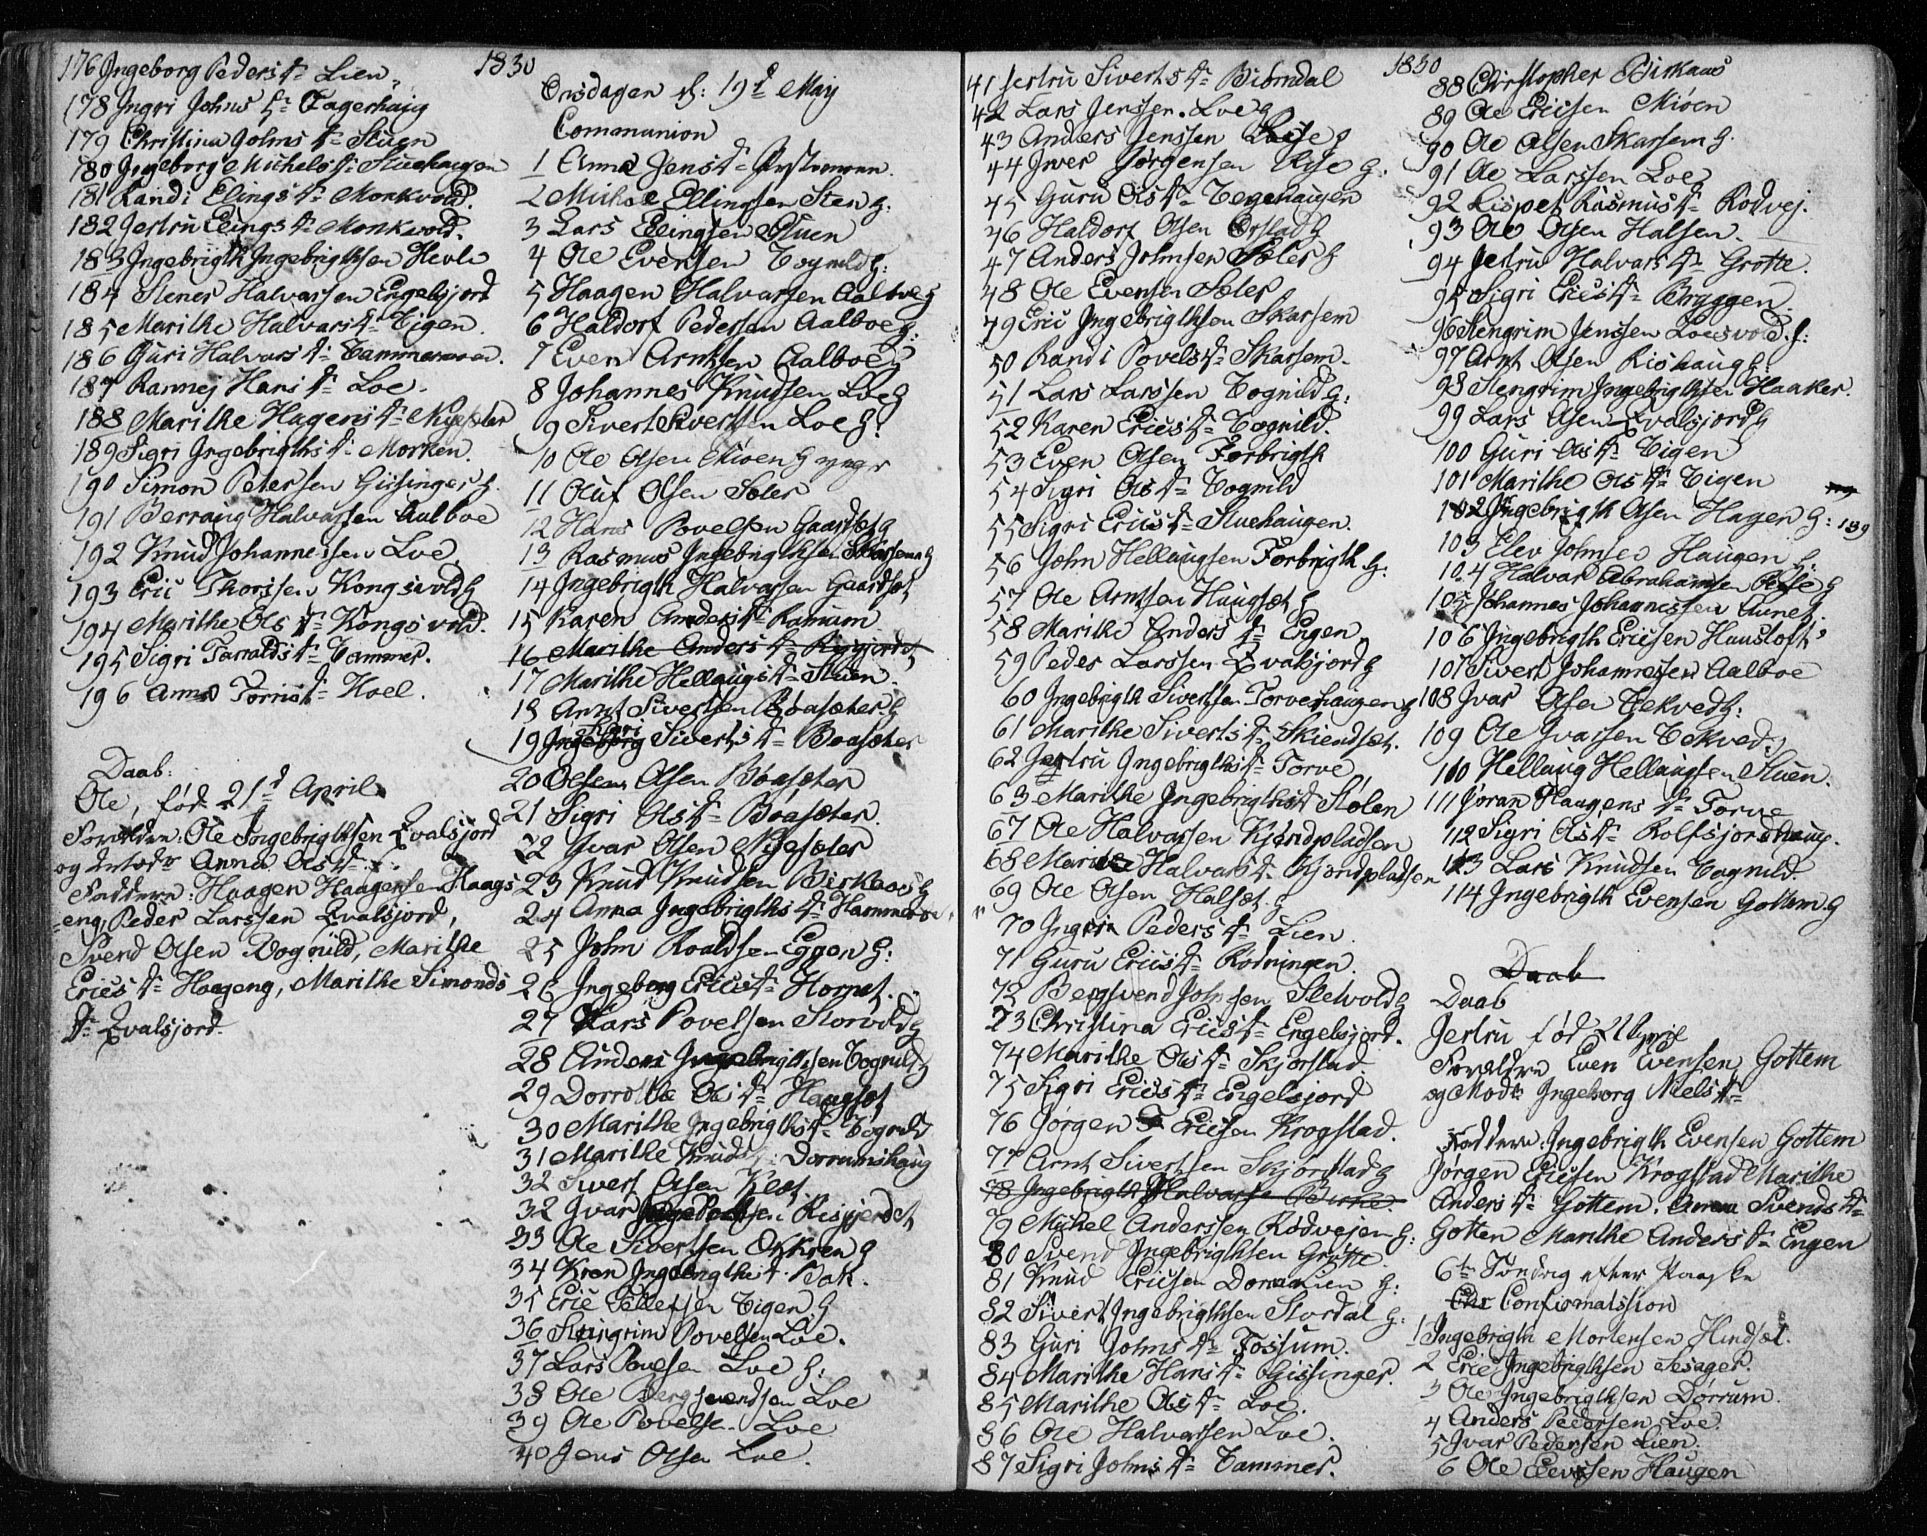 1830
176 Ingeborg Peders dr Lien
178 Ingri Johns dr Fagerhaug
179 Christina Johns dr Stuen
180 Ingeborg Michels dr Stuehaugen
181 Randi Elings dr Monkvold.
182 Jertru Elings dr Monkvold.
183 Ingebrigth Ingebrigthsen Hevle
184 Stener Halvarssen Engelsjord
185 Marithe Halvars dr Eigen
186 Guri Halvars dr
187 Rannej Hans dr Loe
188 Marithe Hagens dr
189 Sigri Ingebrigths dr Morken.
190 Simon Petersen Gissinger g.
191 Berraug Halvarssen Aalboe
192 Knud Johannessen Loe
193 Eric Thorssen Kongsvold g
194 Marithe Ols dr Kongsvold.
195 Sigri Tarralds dr Tammer.
196 Anna Torris dr Hoel.
Daab:
Ole, fød 21d April
Forældre: Ole Ingebrigthsen Evalsjord
og Anna Ols dr
Faddere: Haagen Haagensen Haags
eng, Peder Larssen Evalsjord,
Svend Olsen Tognild, Marithe
Erics dr Haageng, Marithe Simonds
dr Evalsjord.
Onsdagen d: 19d Maij
Communion
1 Anna Jens dr
2 Michel Ellingsen Sten g.
3 Lars Elingsen Stuen
4 Ole Evensen Tognild g:
5 Haagen Halvarsen Aalboe g
6 Haldort Pedersen Aalboe g:
7 Even Arntsen Aalboe g
8 Johannes Knudsen Loe g
9 Sivert Sivertsen Loe g:
10 Ole Olsen Mioen g
11 Oluf Olsen Sæter
12 Hans Povelsen Gaardset g
13 Rasmus Ingebrigthsen Skarsem g
14 Ingebrigth Halvarsen Gaardset
15 Karen Anders dr Ramum
16 Marithe Anders dr
17 Marithe Hellaugs dr Stuen.
18 Arnt Sivertsen Boasæter g
19 Ingeborg Siverts dr Boasæter
20 Olsen Boasæter
21 Sigri Ols dr Boasæter.
22 Ivar Olsen
23 Knud Knudsen Birkaas g
24 Anna Ingebrigths dr
25 John Roaldsen Eggen g:
26 Ingeborg Erics dr Hornet.
27 Lars Povelsen Storvold g
28 Anders Ingebrigthsen Tognild g
29 Dorrothe Ols dr Haugset
30 Marithe Ingebrigths dr Tognild
31 Marithe Knuds dr Dorrumshaug
32 Sivert Olsen Kleet
32 Ivar Risgjerdet
33 Ole Sivertsen g
34 Kren Ingebrigths dr Bak.
35 Eric Tellefsen Eigen g
36 Steingrim Povelsen Loe.
37 Lars Povelsen Loe g:
38 Ole Bergsvendsen Loe
39 Ole Povelsen Loe
40 Jens Olsen Loe.
1830
41 Jertru Siverts dr Biørndal
42 Lars Jenssen Loe g
43 Anders Jenssen Rise g
44 Iver Jørgensen Rise g:
45 Guru Ols dr Tegehaugen
46 Haldort Olsen g
47 Anders Johnsen Sæter g
48 Ole Evensen Sæter
49 Eric Ingebrigthsen Skarsem
50 Randi Povels dr Skarsem
51 Lars Larssen Tognild g:
52 Karen Erics dr Tognild.
53 Even Olsen Forbrigth
54 Sigri Ols dr Tognild
55 Sigri Erics dr Stuehaugen.
56 John Hellaugsen Forbrigth g.
57 Ole Arntsen Haugset g
58 Marithe Anders dr Engen
59 Peder Larssen Evalsjord g
60 Ingebrigth Sivertsen Torvehaugen g
61 Marithe Siverts dr Skiendset.
62 Jertru Ingebrigths dr Torve
63 Marithe Ingebrigths dr Stølen
67 Ole Halvarssen Kjøndpladsen
68 Marithe Halvars dr Kjøndpladsen
69 Ole Olsen Halset g
70 Ingri Peders dr Lien.
71 Guru Erics dr Rodningen.
72 Bergsvend Johnsen Sletvold g
73 Christina Erics dr Engelsjord.
74 Marithe Ols dr Skjorstad
75 Sigri Erics dr Engelsjord
76 Jørgen Ericsen Krogstad.
77 Arnt Sivertsen Skjorstad g
78 Ingebrigth Halvarse
79 Michel Anderssen Rodvejen g:
80 Svend Ingebrigthsen Grøtte.
81 Knud Ericsen g:
82 Sivert Ingebrigthsen Stordal g:
83 Guri Johns dr Fossum.
84 Marithe Hans dr Gissinger.
85 Marithe Ols dr Loe.
86 Ole Halvarssen Loe.
87 Sigri Johns dr Tammer.
88 Christopher Birkaas
89 Ole Ericsen Mioen
90 Ole Olsen Skarsem g.
91 Ole Larssen Loe
92 Lispet Rasmus dr Rodvej.
93 Ole Olsen Halsen
94 Jertru Halvars dr Grøtte.
95 Sigri Erics dr Bryggen
96 Stengrim Jenssen Loesvold.
97 Arnt Olsen Rishaug g:
98 Stengrim Ingebrigthsen Haaker.
99 Lars Olsen Evalsjord g
100 Guri Ols dr Eigen
101 Marithe Ols dr Eigen
102 Ingebrigth Olsen Hagen g: 189
103 Elev Johnsen Haugen g.
104 Halvar Abrahamsen Rise g
105 Johannes Johannessen
106 Ingebrigth Ericsen Haustoft
107 Sivert Johannesen Aalboe
108 Ivar Olsen Tekved g:
109 Ole Ivarsen Tekved.
110 Hellaug Hellaugsen Stuen.
111 Joran Haagens dr Torve
112 Sigri Ols dr Rolfsjordhaug.
113 Lars Knudsen Tognild
114 Ingebrigth Evensen Gottem g
Daab
Daab
Jertru fød
Forældre Even Evensen Gottem
og Mode Ingeborg Niels dr
Faddere: Ingebrigth Evensen Gottem
Jørgen Ericsen Krogstad Marithe
Anders dr Gottem. Anna Svends dr
Gotten Marithe Anders dr Engen
6te Søndag efter Paaske
Confirmatssion
1 Ingebrigth Mortensen Hindset.
2 Eric Ingebrigthsen Sesager.
3 Ole Ingebrigthsen Dørrum.
4 Anders Pedersen Loe.
5 Ivar Pedersen Lien.
6 Ole Haugen